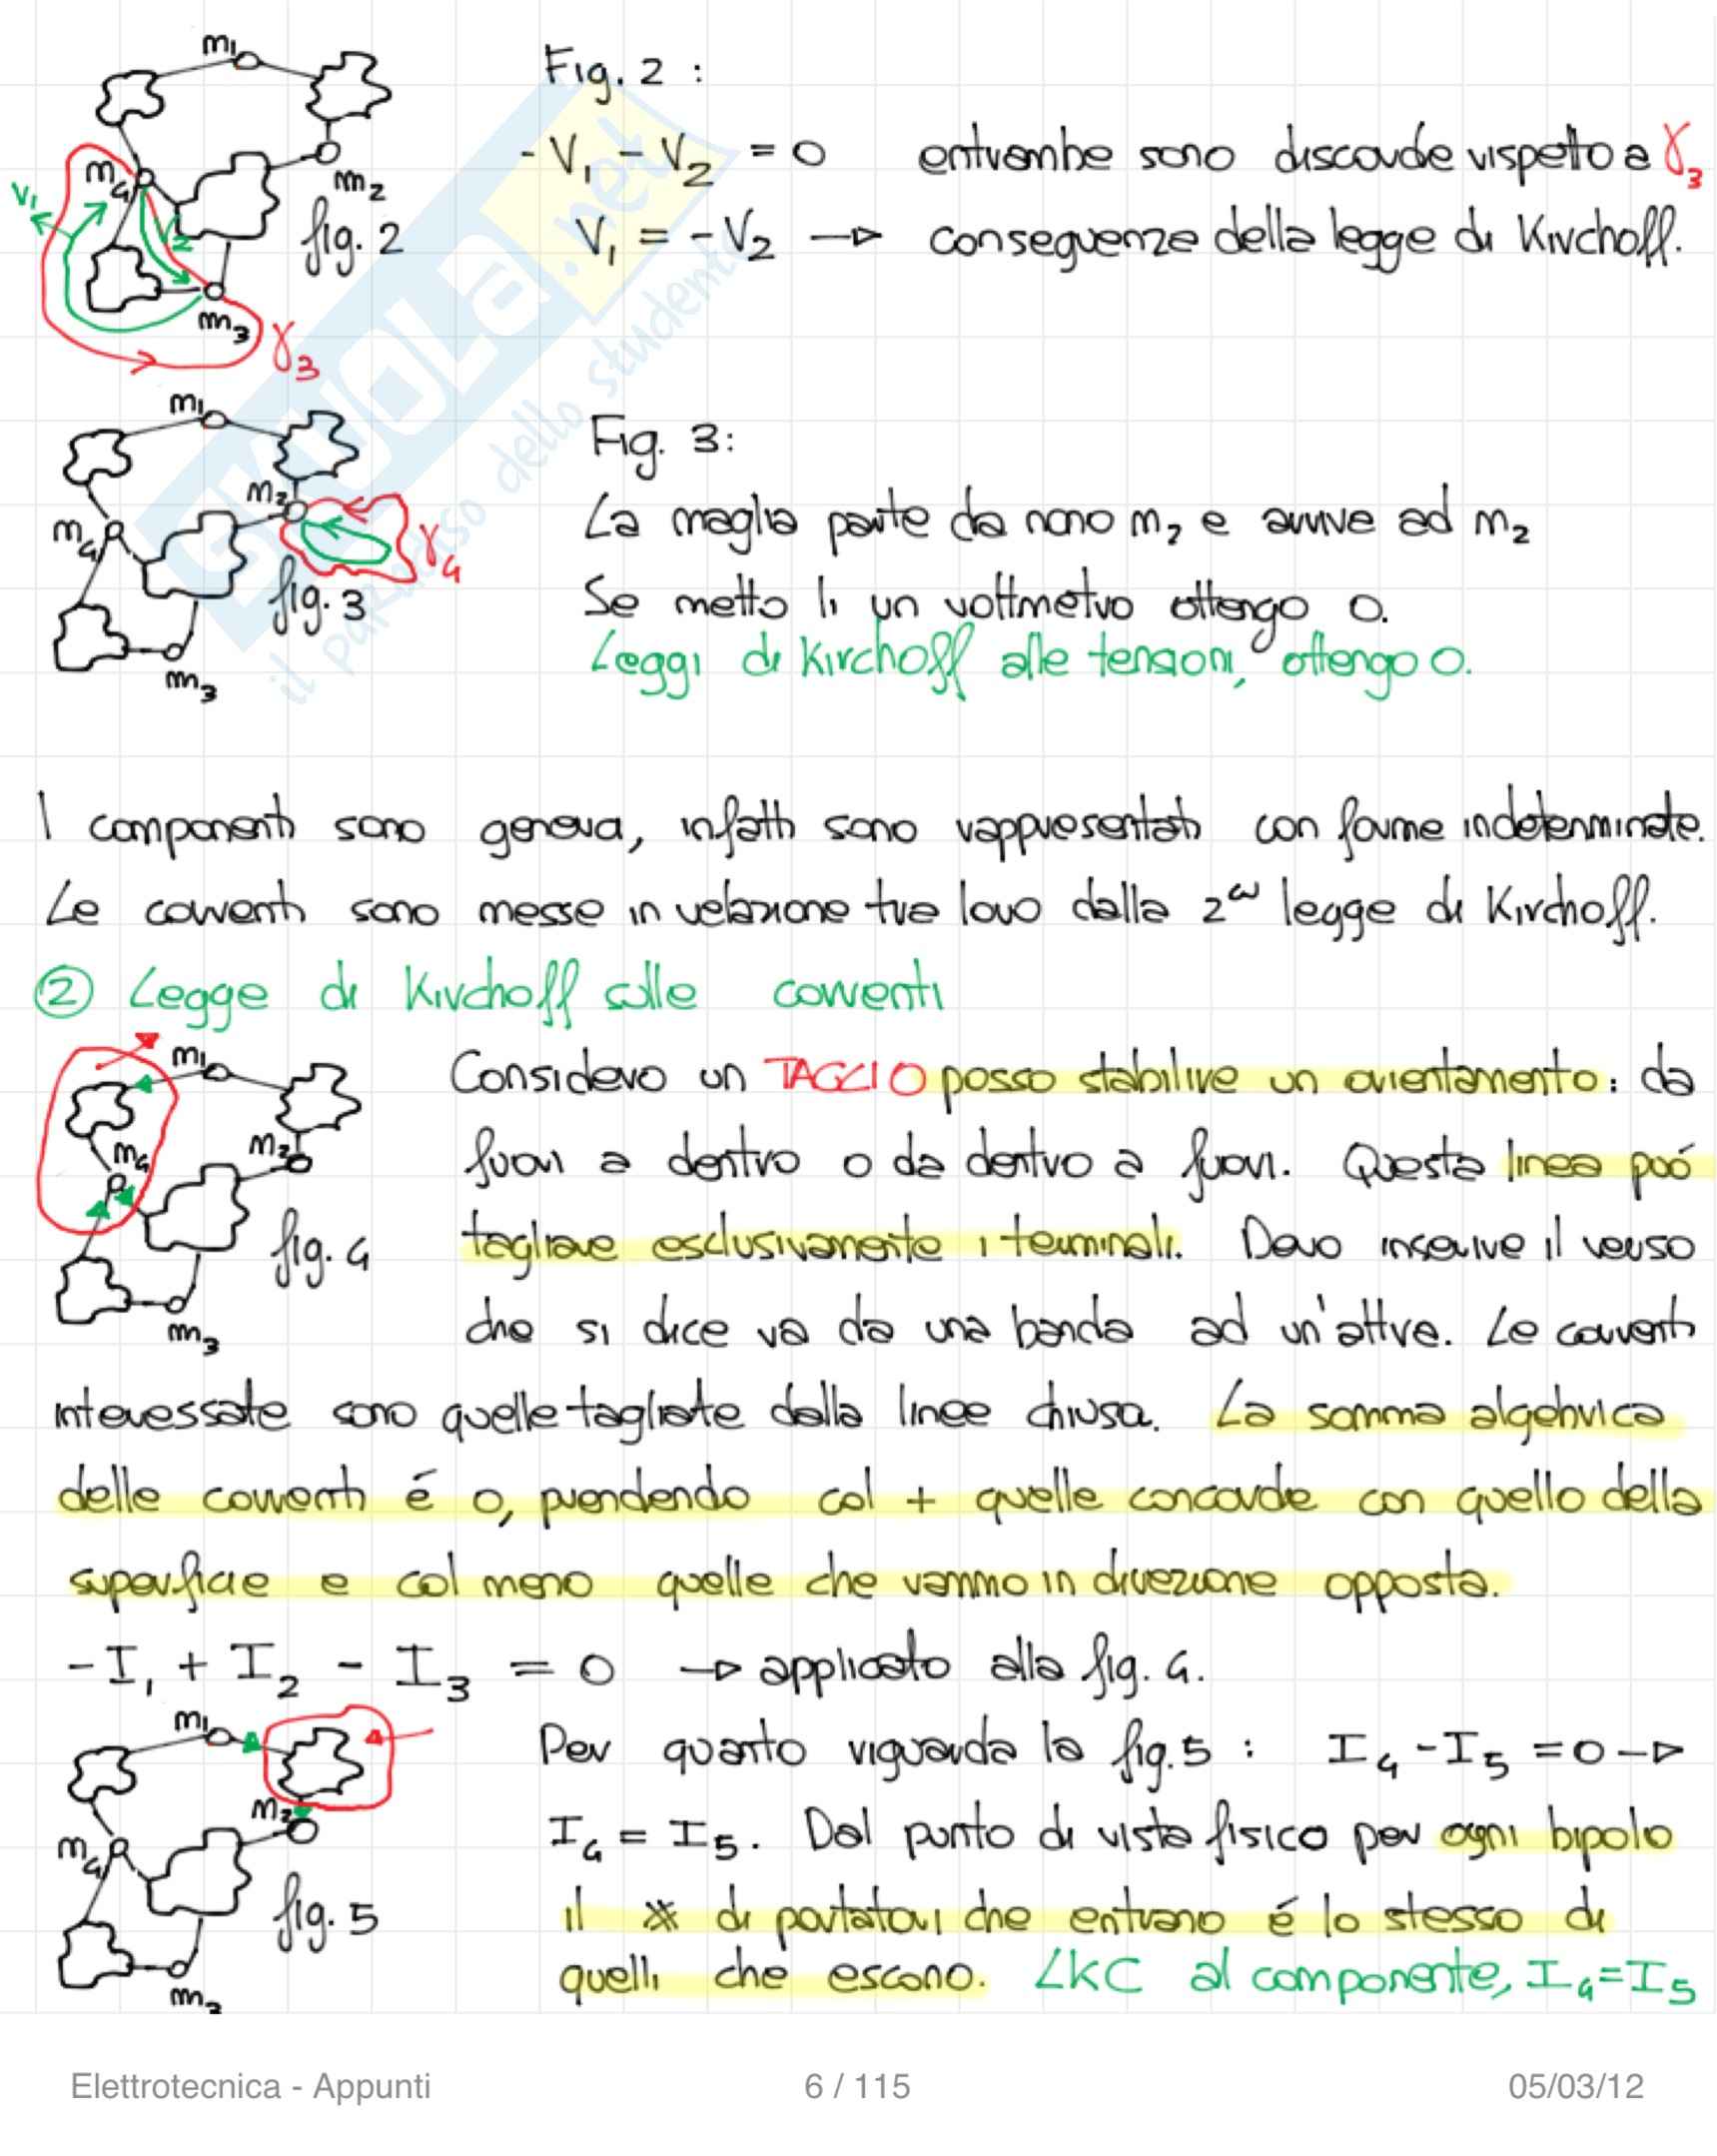 m1
Fig. 2 :
-V1 - V2 = 0 entrambe sono discorde rispetto a γ3
m4
m2
V1
V2
fig. 2
V1 = -V2 → conseguenza della legge di Kirchoff.
m3
γ3
m1
Fig. 3:
m2
La maglia parte da nono m2 e arriva ad m2
m4
γ4
fig. 3
Se metto lì un voltmetro ottengo 0.
Leggi di Kirchoff alle tensioni, ottengo 0.
m3
SKUOLA.net
il paradiso dello studente
I componenti sono generici, infatti sono rappresentati con forme indeterminate.
Le correnti sono messe in relazione tra loro dalla 2a legge di Kirchoff.
2 Legge di Kirchoff sulle correnti
m1
Considero un TAGLIO posso stabilire un orientamento: da
m4
m2
fuori a dentro o da dentro a fuori. Questa linea puó
fig. 4
tagliare esclusivamente i terminali. Devo inserire il verso
m3
che si dice va da una banda ad un'altra. Le correnti
interessate sono quelle tagliate dalla linea chiusa. La somma algebrica
delle correnti é 0, prendendo col + quelle concorde con quello della
superficie e col meno quelle che vanno in direzione opposta.
-I1 + I2 - I3 = 0 → applicato alla fig. 4.
m1
Per quanto riguarda la fig. 5 : I4 - I5 = 0 →
m2
I4 = I5. Dal punto di vista fisico per ogni bipolo
m4
fig. 5
il # di portatori che entrano é lo stesso di
quelli che escono. LKC al componente, I4=I5
m3
Elettrotecnica - Appunti 6 / 115 05/03/12